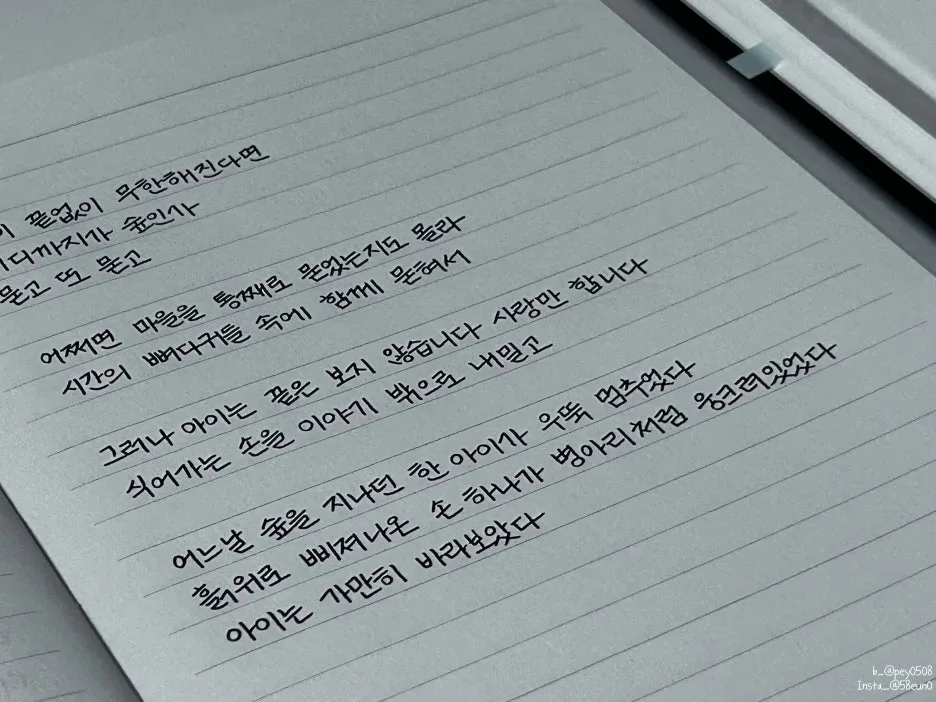 끝없이 무한해진다면
어디까지가 숲인가
묻고 또 묻고
어쩌면 마을을 통째로 묻었는지도 몰라
시간의 뼈다귀들 속에 함께 묻혀서
그러나 아이는 끝은 보지 않습니다 사랑만 합니다
식어가는 손을 이야기 밖으로 내밀고
어느날 숲을 지나던 한 아이가 우뚝 멈추었다
흙위로 삐져나온 손 하나가 병아리처럼 웅크려있었다
아이는 가만히 바라보았다
b_@pey0508
Insta_@58eun0